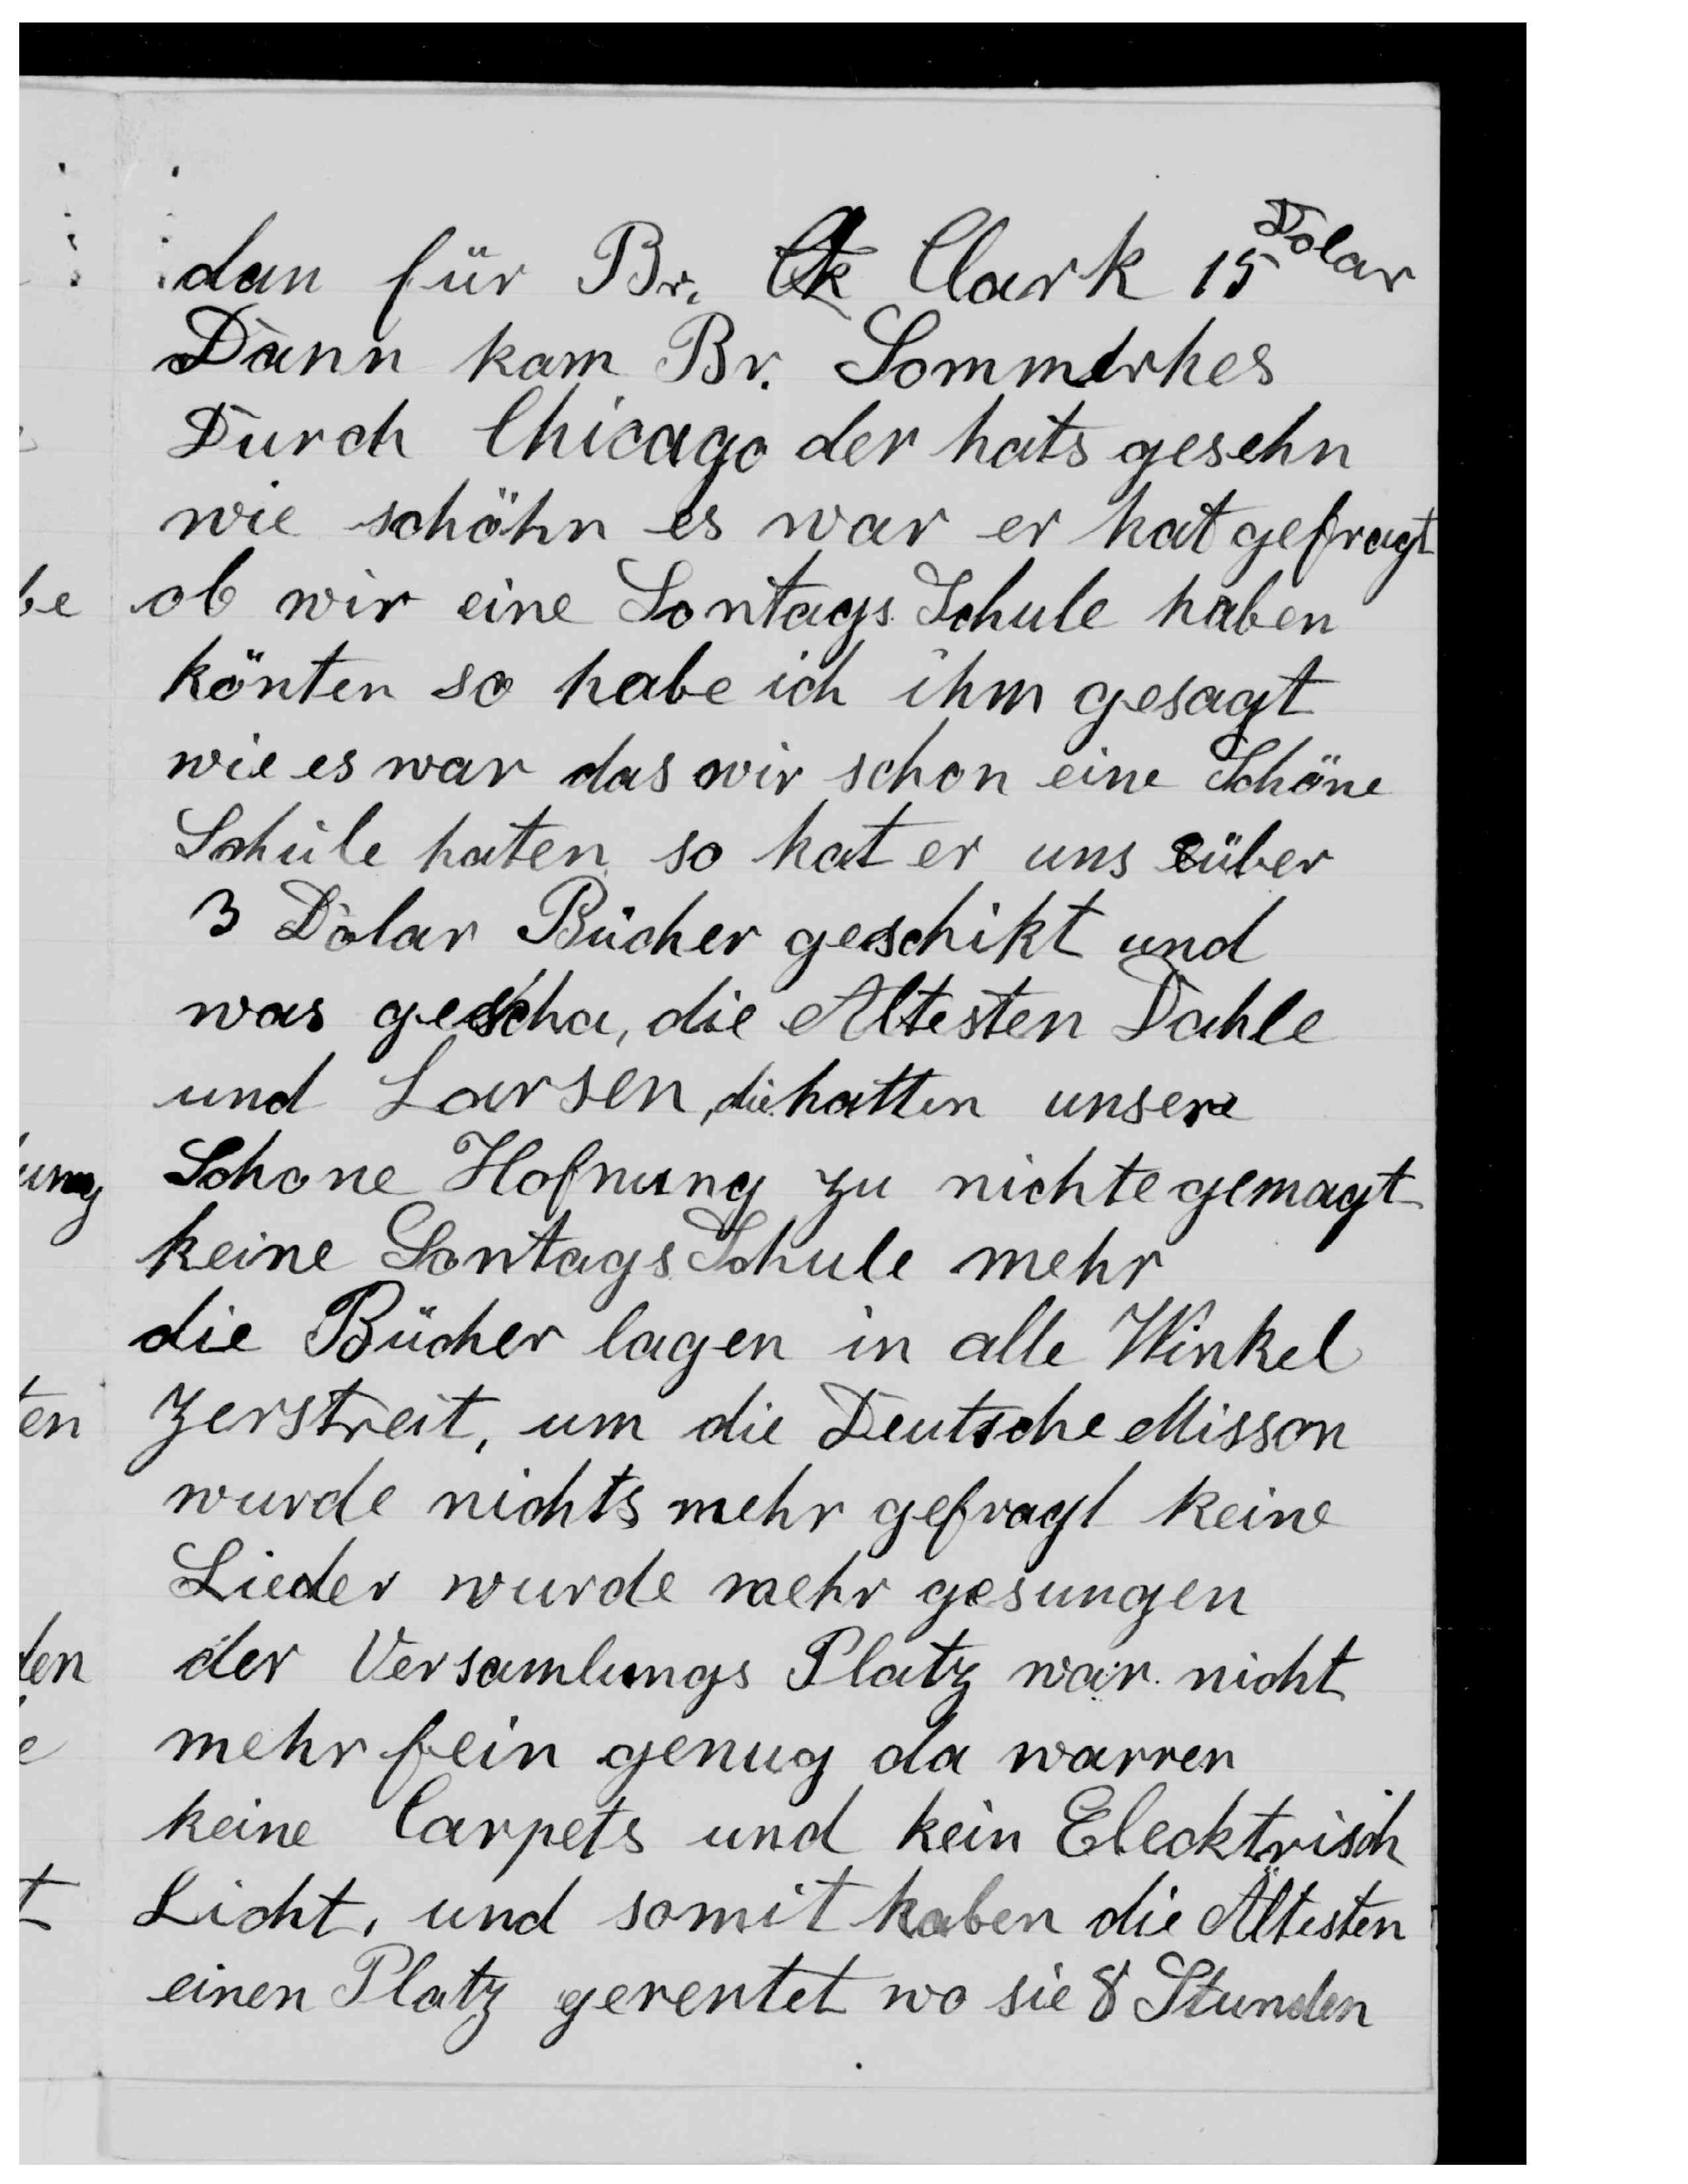 dan für Br. Clark 15 Dolar
Dann kam Br. Sommerhes
Durch Chicago der hats gesehn
wie schöhn es war er hat gefragt
ob wir eine Sontags Schule haben
könten so habe ich ihm gesagt
wie es war das wir schon eine Schöne
Schule haten so hat er uns über
3 Dolar Bücher geschikt und
was gescha, die Altesten Dahle
und Larsen, die hatten unsere
Schone Hofnung zu nichte gemagt
keine Sontags Schule mehr
die Bücher lagen in alle Winkel
zerstreit, um die Deutsche Misson
wurde nichts mehr gefragt keine
Lieder wurde mehr gesungen
der Versamlungs Platz war nicht
mehr fein genug da warren
keine Carpets und kein Elecktrisch
Licht, und somit haben die Ältesten
einen Platz gerentet wo sie 8 Stunden